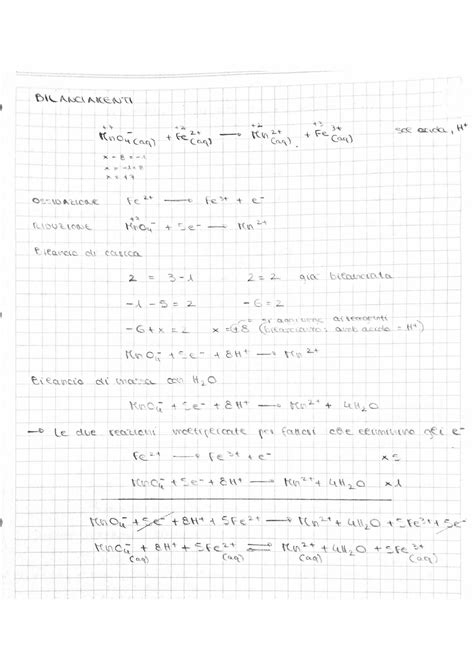 BILANCIAMENTI
+7 +2 +2 +3
MnO₄⁻(aq) + Fe²⁺(aq) → Mn²⁺(aq) + Fe³⁺(aq) sol acida, H⁺
x - 8 = -1
x = -1+8
x = +7
OSSIDAZIONE Fe²⁺ → Fe³⁺ + e⁻
RIDUZIONE MnO₄⁻ + 5e⁻ → Mn²⁺
Bilancio di carica
2 = 3-1 2=2 già bilanciata
-1-5 = 2 -6 = 2
-6+x = 2 x = +8 (bilanciamo amb acido = H⁺)
MnO₄⁻ + 5e⁻ + 8H⁺ → Mn²⁺
Bilancio di massa con H₂O
MnO₄⁻ + 5e⁻ + 8H⁺ → Mn²⁺ + 4H₂O
→ le due reazioni moltiplicate per fattori che eliminino gli e⁻
Fe²⁺ → Fe³⁺ + e⁻ x5
MnO₄⁻ + 5e⁻ + 8H⁺ → Mn²⁺ + 4H₂O x1
MnO₄⁻ + 5e⁻ + 8H⁺ + 5Fe²⁺ → Mn²⁺ + 4H₂O + 5Fe³⁺ + 5e⁻
MnO₄⁻(aq) + 8H⁺ + 5Fe²⁺(aq) ⇌ Mn²⁺(aq) + 4H₂O + 5Fe³⁺(aq)